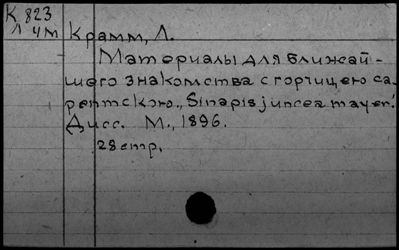 К 823
Л 4м
Крамм, Л.
Материалы для ближай-
шего знакомства с горчицею са-
рептскою., Sinapis juncea mayer!
Дисс. М., 1896.
28 стр.